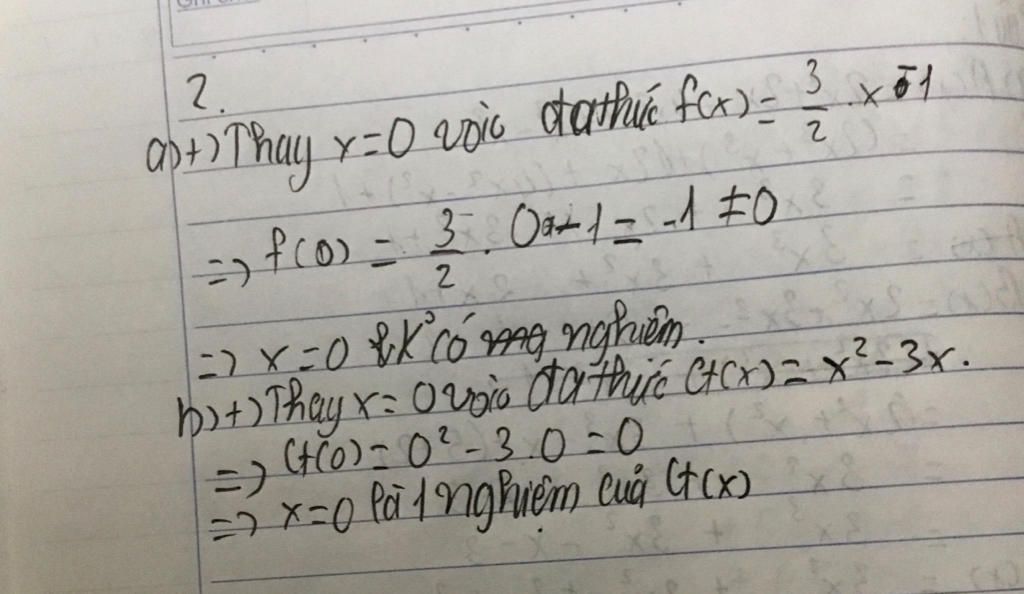 2.
a) +) Thay x = 0 vào đa thức f(x) = 3/2 . x - 1
=> f(0) = 3/2 . 0 - 1 = -1 ≠ 0
=> x = 0 k° có nghiệm.
b) +) Thay x = 0 vào đa thức G(x) = x² - 3x.
=> G(0) = 0² - 3.0 = 0
=> x = 0 là 1 nghiệm của G(x)